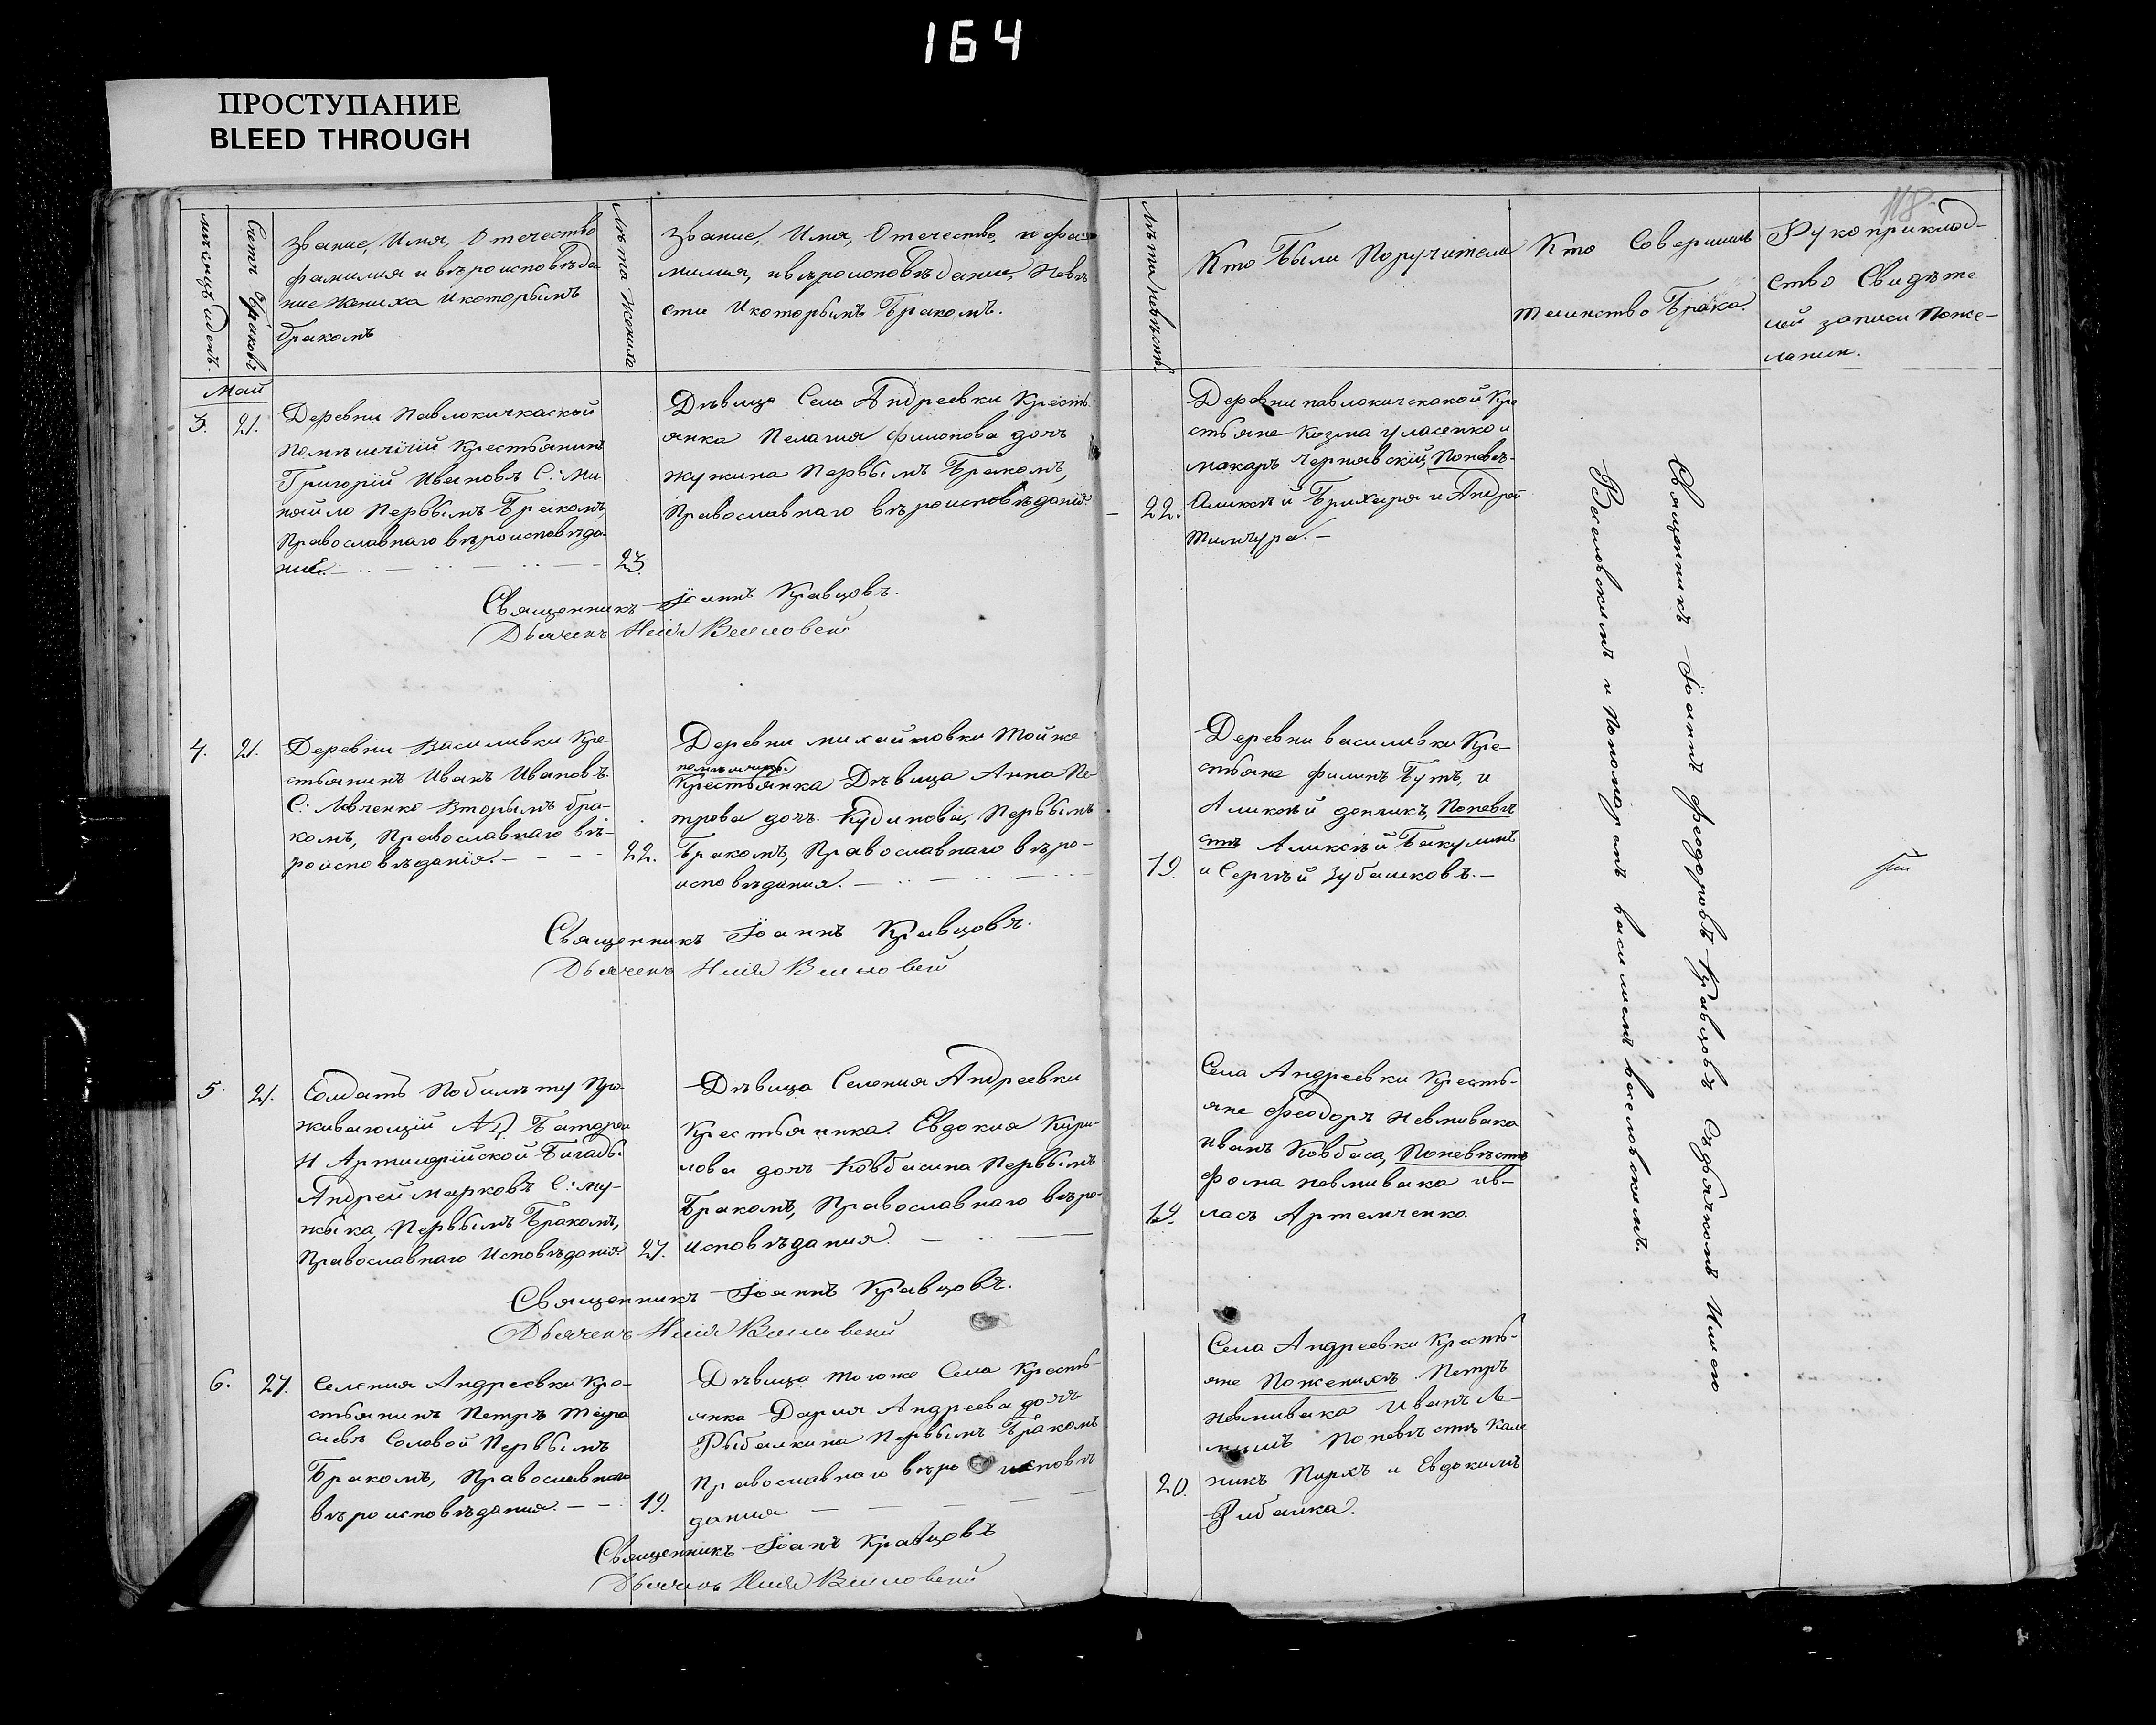 164
ПРОСТУПАНИЕ
BLEED THROUGH
118
Мѣсяцъ и день.
Счетъ браковъ
Званіе, Имя, Отечество
фамилия и вѣроисповѣда
ние жениха и которымъ
бракомъ
Лѣта Жениха
Званіе, Имя, Отечество, и фа
милия, и вѣроисповѣдание, Невѣ
сты И которымъ Бракомъ.
Лѣта невѣсты
Кто Были Поручители
Кто Совершилъ
таинство Брака.
Рукоприклад-
ство Свидѣте
лей записи Поже-
лания.
Май
3.
21.
Деревни Павлокичкаской
Помѣщичій Крестьянинъ
Григорій Ивановъ С: Ми
няйло Первымъ Бракомъ,
Православнаго вѣроисповѣда
ния.
23.
Дѣвица Села Андреевки Кресть
янка Пелагия Филипова дочь
Первымъ Бракомъ,
Православнаго вѣроисповѣдания.
22.
Деревни Павлокичкаской Кре
стьяне Козма Уласенко и
Макаръ Чернявскій, Поневѣ-
Аликсѣй Брихаря и Андрей
Тимчура.
Священникъ Іоаннъ Кравцовъ.
Дьячекъ Илия
4.
21.
Деревни Василивки Кре-
стьянинъ Иванъ Ивановъ
С: Левченко Вторымъ бра-
комъ, Православнаго вѣ-
роисповѣдания.
22.
Деревни михайловки Той же
помѣщицы
Крестьянка Дѣвица Анна Пе-
трова дочь Кудинова, Первымъ
Бракомъ, Православнаго вѣро-
исповѣдания.
19.
Деревни василивки Кре-
стьяне филипъ Бутъ, и
Аликсѣй дончикъ, Поневѣ
стѣ Аликсѣй Бакулинъ
и Сергѣй Зубашковъ.
Священникъ Іоаннъ Кравцовъ.
Дьячекъ Илия
5.
21.
Солдатъ Побилѣту Про-
живающій Батареи
Артилерійской Бригады
Андрей Марковъ С: му-
жыка, Первымъ Бракомъ,
Православнаго Исповѣдания.
27.
Дѣвица Селения Андреевки
Крестьянка Евдокия Кури-
лова дочь Ковбасина Первымъ
Бракомъ, Православнаго вѣро-
исповѣдания.
19.
Села Андреевки Кресть-
яне Феодоръ Невливака
иванъ Ковбаса, Поневѣстѣ
фома невливака ив-
ласъ Артемченко.
Священникъ Іоаннъ Кравцовъ.
Дьячекъ Илия
6.
27.
Селения Андреевки Кре-
стьянинъ Петръ Тара
сиевъ Соловой Первымъ
Бракомъ, Православнаго
вѣроисповѣдания.
19.
Дѣвица тогоже Села Кресть-
янка Дария Андреева дочь
Рыбалкина Первымъ Бракомъ
Православнаго вѣро исповѣ
дания
20.
Села Андреевки Кресть-
яне Поженихѣ Петръ
Невливака Иванъ
Поневѣстѣ Кале
никъ Пирхъ и Евдокимъ
Рибалка.
Священникъ Іоанъ Кравцовъ
Дьячекъ Илия
Священникъ Іоаннъ феодоровъ Кравцовъ Съдьячкомъ Илиею
Веселовскимъ и Пономаремъ василиемъ веселовскимъ.